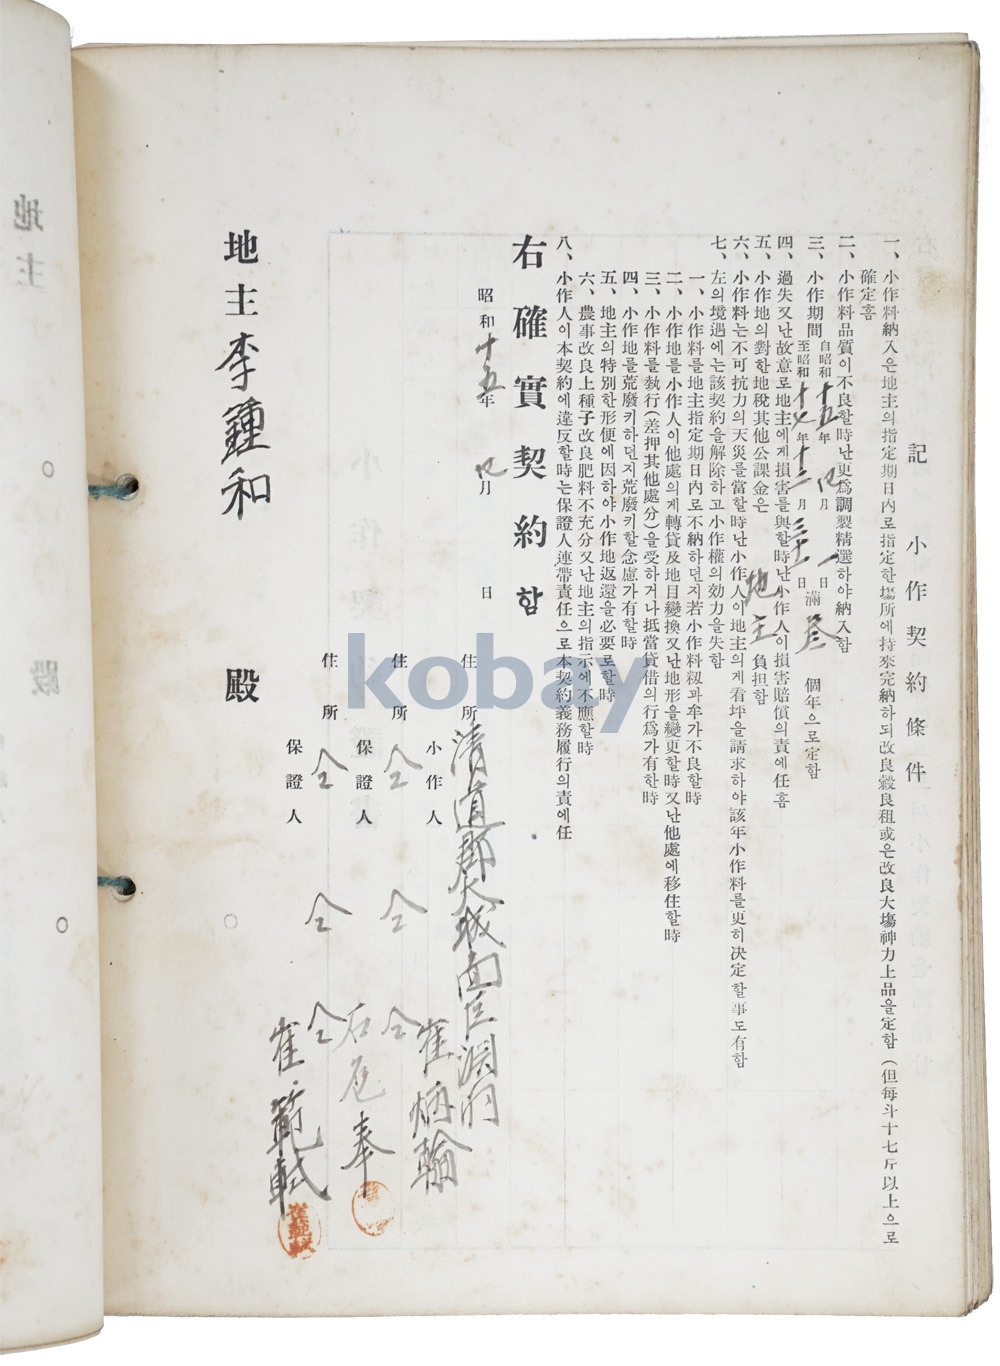 記 小作契約條件
一、小作料納入은地主의指定期日內로指定한場所에持來完納하되改良穀良租或은改良大場神力上品을定함(但每斗十七斤以上으로
確定홈
二、小作料品質이不良할時난更爲調製精選하야納入함
三、小作期間 自昭和十五年四月一日 至昭和十七年十二月三十一日 滿參個年으로定함
四、過失又난故意로地主에게損害를與할時난小作人이損害賠償의責에任홈
五、小作地의對한地稅其他公課金은 地主 負担함
六、小作料는不可抗力의天災를當할時난小作人이地主의게看坪을請求하야該年小作料를更히決定할事도有함
七、左의境遇에는該契約을解除하고小作權의効力을失함
一、小作料를地主指定期日內로不納하던지若小作料籾과牟가不良할時
二、小作地를小作人이他處의게轉貸及地目變換又난地形을變更할時又난他處에移住할時
三、小作料를執行(差押其他處分)을受하거나抵當貸借의行爲가有한時
四、小作地를荒廢키하던지荒廢키할念慮가有할時
五、地主의特別한形便에因하야小作地返還을必要로할時
六、農事改良上種子改良肥料不充分又난地主의指示에不應할時
八、小作人이本契約에違反할時는保證人連帶責任으로本契約義務履行의責에任
右確實契約함
昭和十五年四月 日
住所 淸道郡大城面巨淵洞
小作人 崔炳翰
住所 仝 仝 仝
保證人 石 奉
住所 仝 仝 仝
保證人 崔範軾
崔範軾
地主 李鍾和 殿
地主
殿
kobay